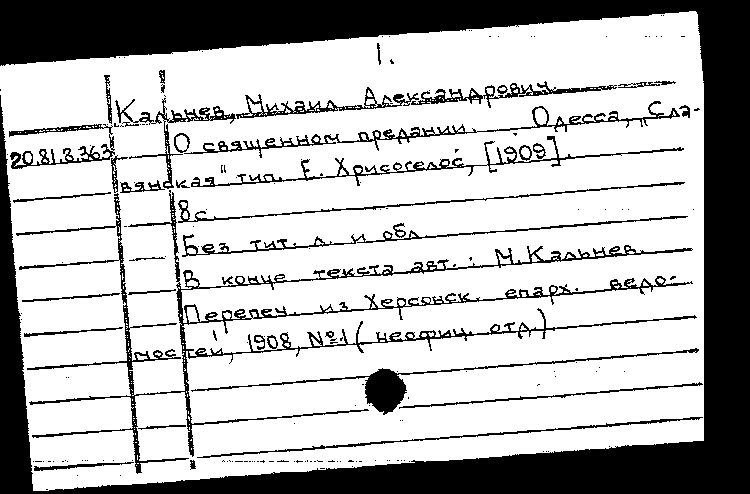 1.
Кальнев, Михаил Александрович.
20.81.8.363 О священном предании. Одесса, "Сла-
вянская" тип. Е. Хрисогелос, [1909].
8с.
Без тит. л. и обл.
В конце текста авт.: М. Кальнев.
Перепеч. из Херсонск. епарх. ведо-
мостей, 1908, №1 (неофиц. отд.).